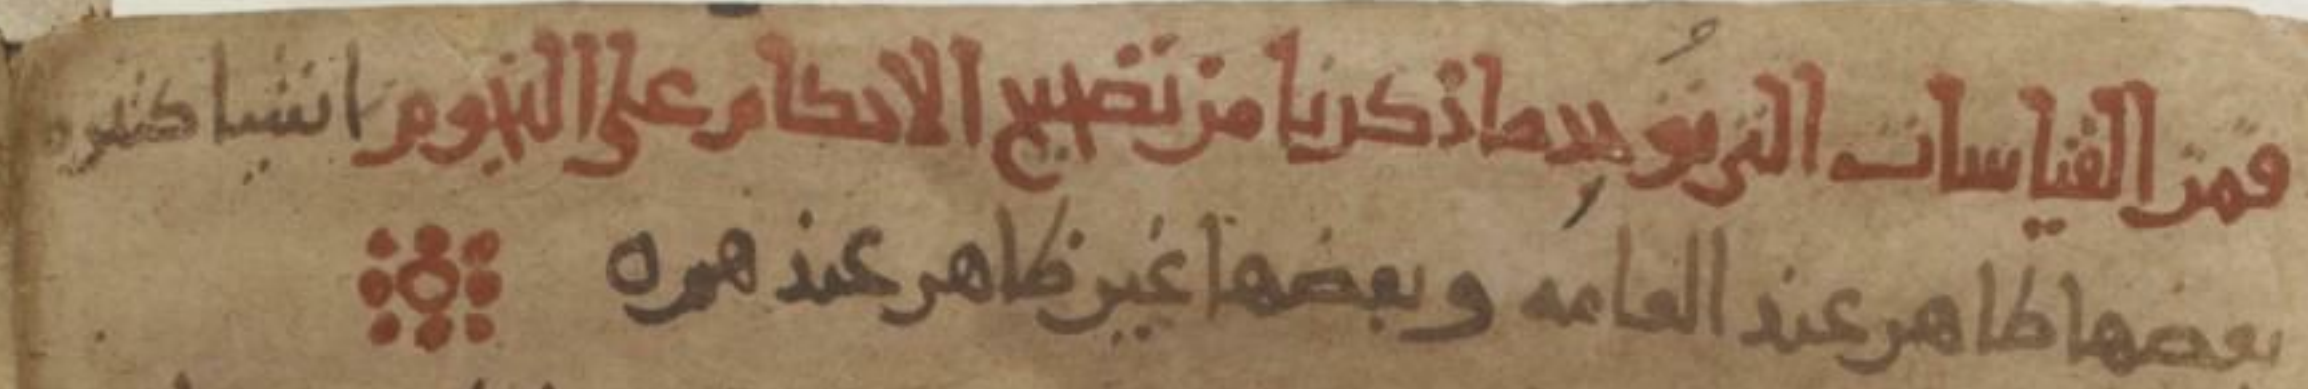 فمن القياسات التي توجد ما ذكرنا من تصحيح الاحكام على النجوم اشيا كثيره
بعضها ظاهر عند العامه وبعضها غير ظاهر عندهم ه